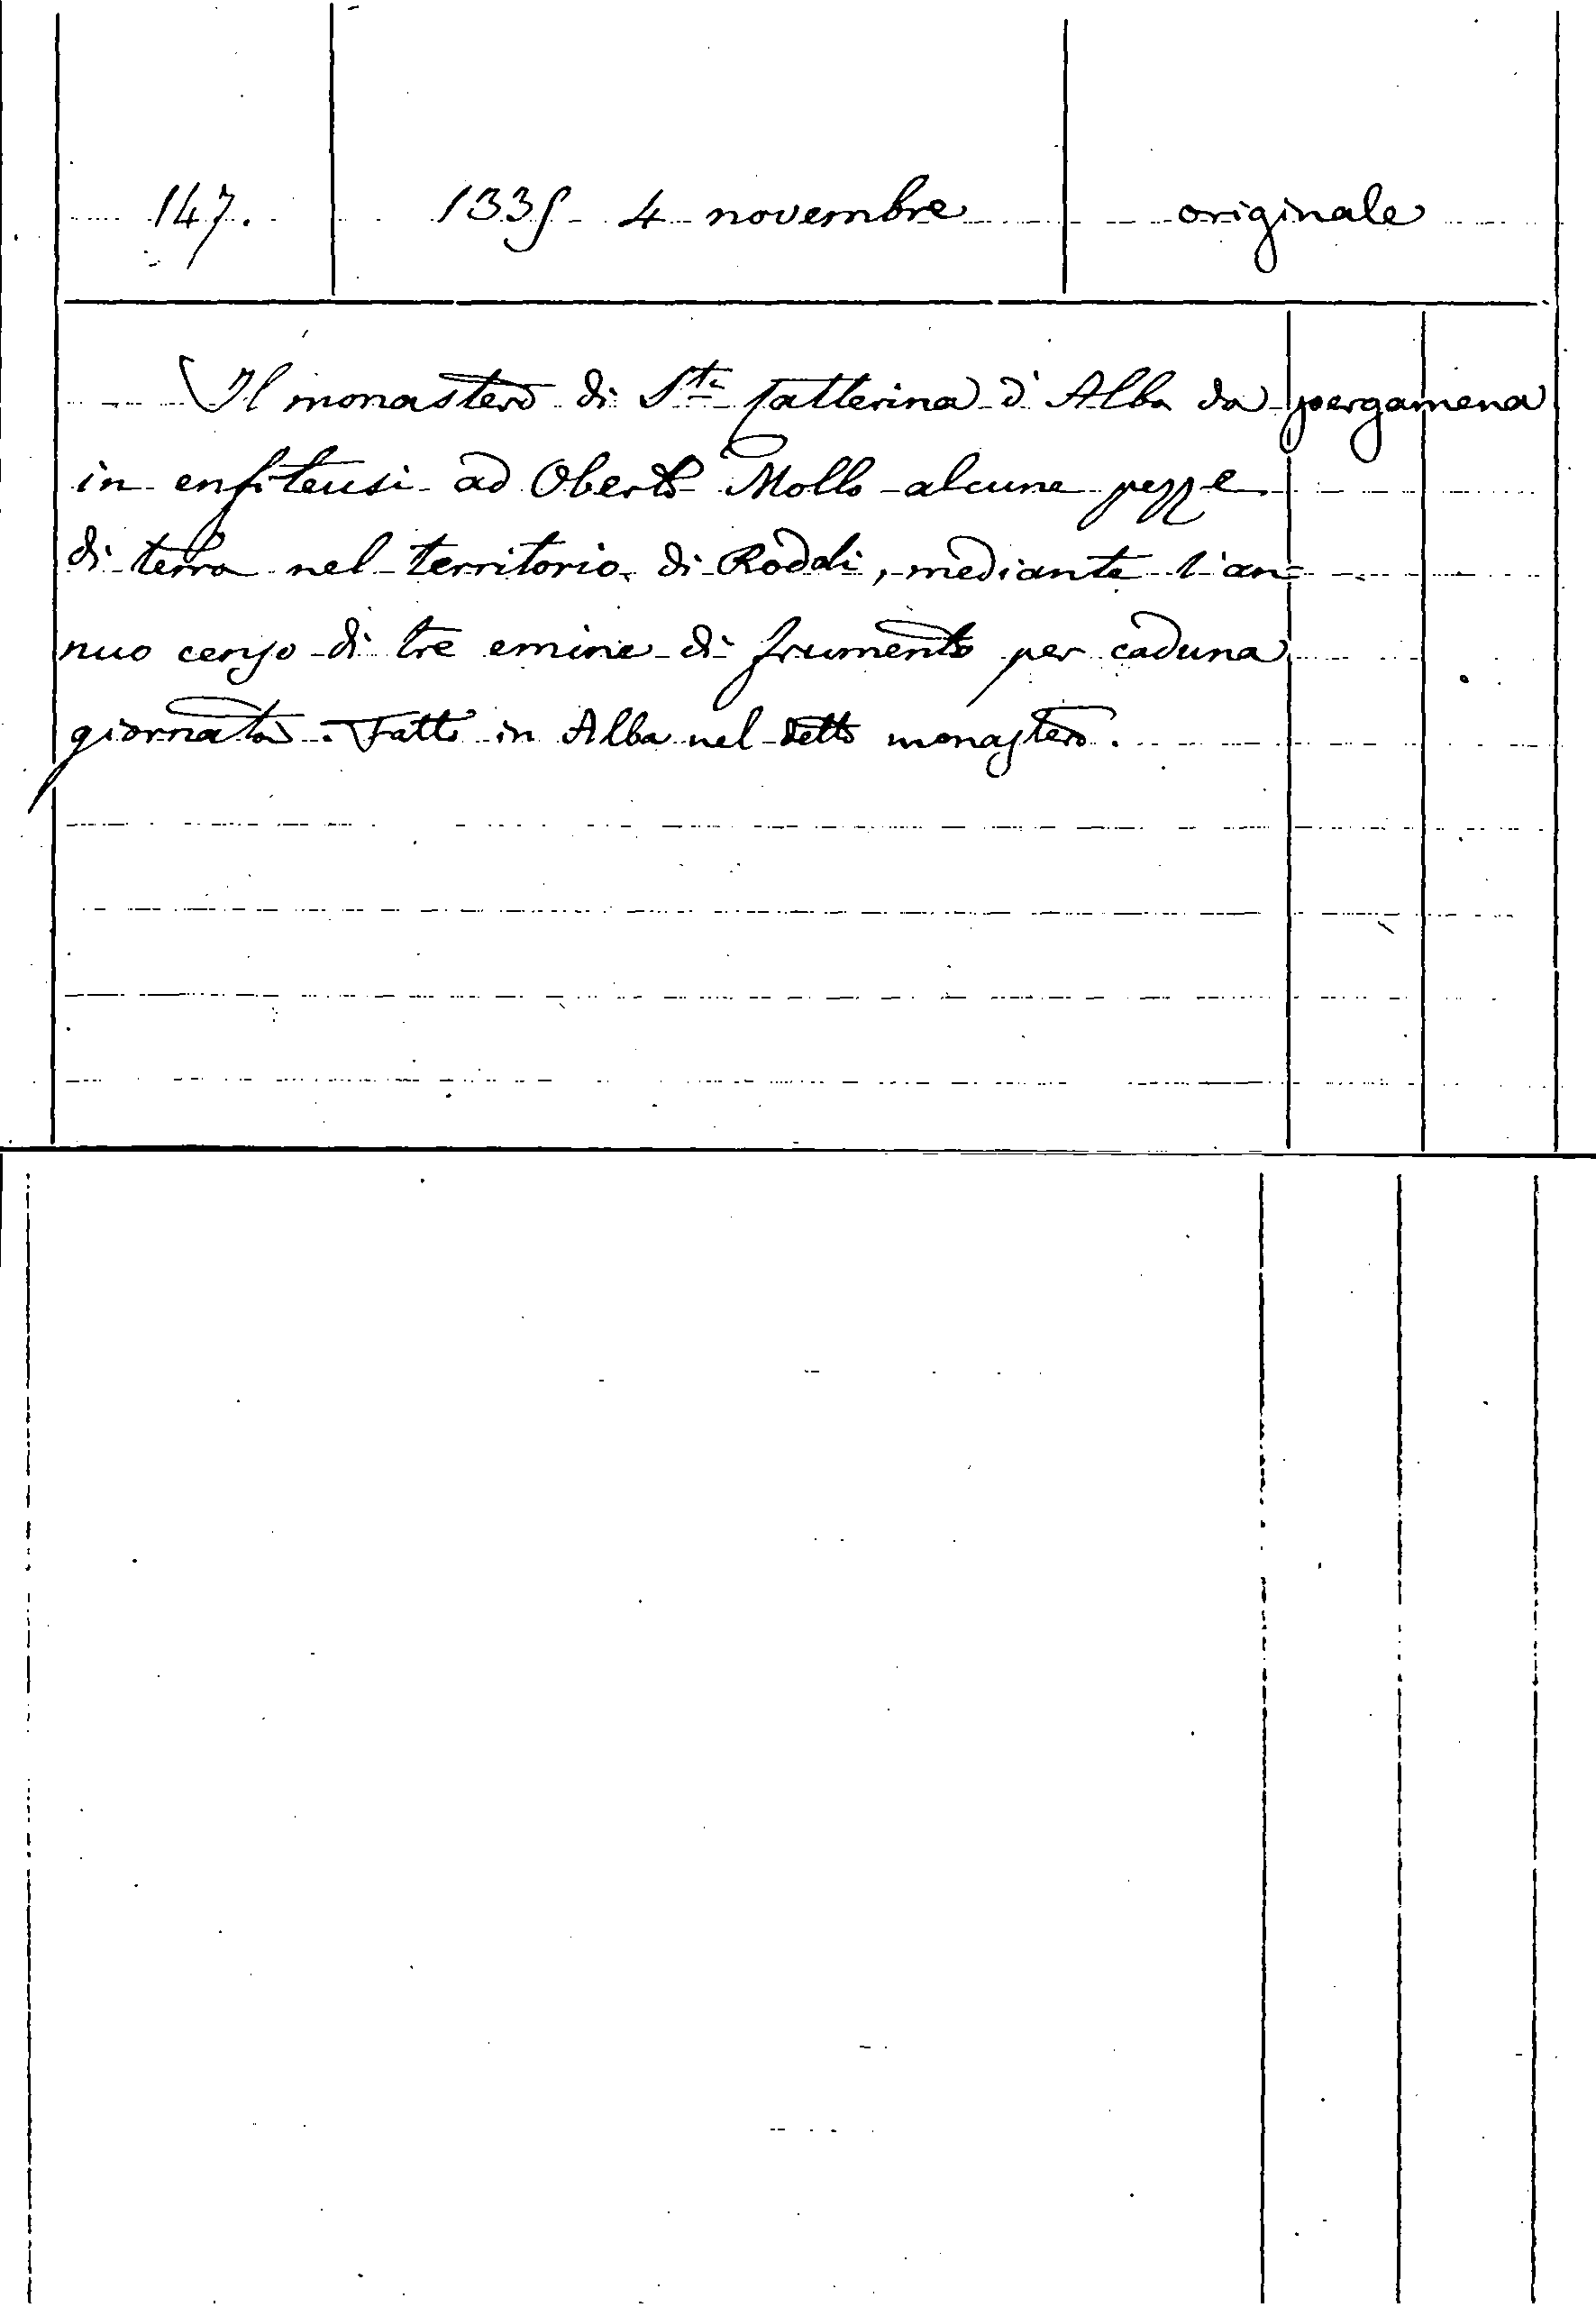 147. 1335 4 novembre originale
Il monastero di Sta Catterina d'Alba da pergamena
in enfiteusi ad Oberto Mollo alcune pezze
di terra nel territorio di Roddi, mediante l'an=
nuo censo di tre emine di frumento per caduna
giornata. Fatto in Alba nel detto monastero.